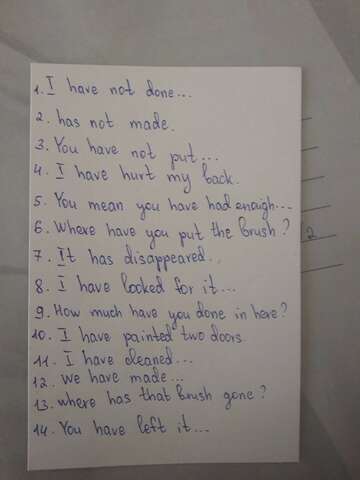 1. I have not done...
2. has not made.
3. You have not put...
4. I have hurt my back.
5. You mean you have had enough...
6. Where have you put the brush?
7. It has disappeared...
8. I have looked for it...
9. How much have you done in here?
10. I have painted two doors.
11. I have cleaned...
12. we have made...
13. where has that brush gone?
14. You have left it...
2